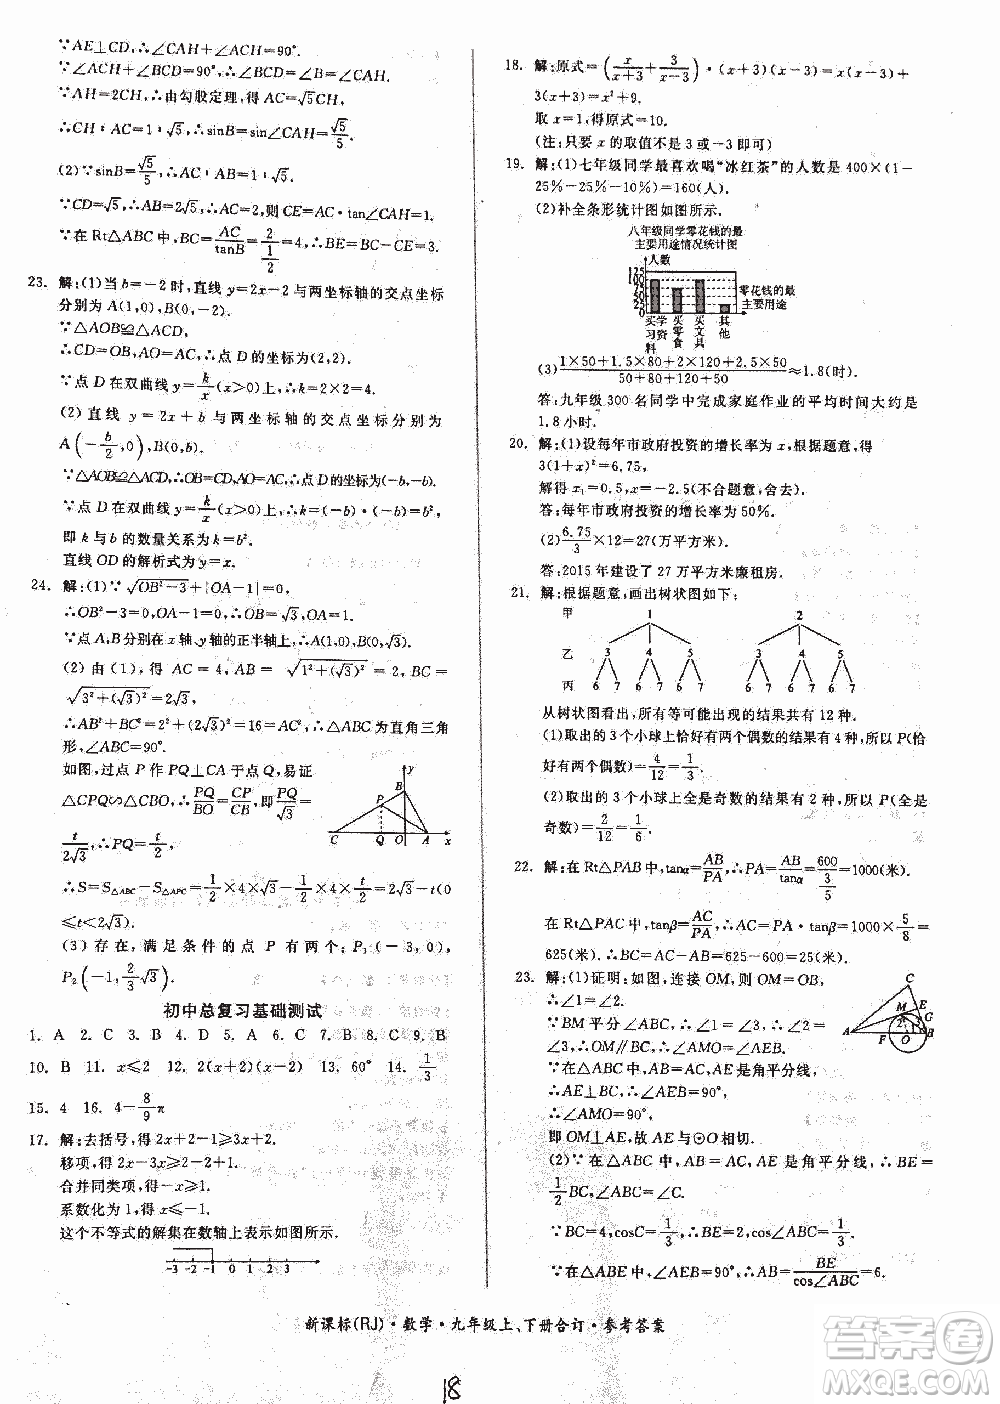 ∵AE⊥CD,∴∠CAH+∠ACH=90°.
∵∠ACH+∠BCD=90°,∴∠BCD=∠CAH.
∵AH=2CH,∴由勾股定理,得AC=√5CH,
∴CH:AC=1:√5,∴sinB=sin∠CAH=√5/5.
(2)∵sinB=√5/5,∴AC:AB=1:√5,∴AC=2.
∵CD=√5,∴AB=2√5,∴BC=4,则CE=AC·tan∠CAH=1.
∵在Rt△ABC中,BC=AC/tanB=2/(1/2)=4,∴BE=BC-CE=3.
23. 解:(1)当b=-2时,直线y=2x-2与两坐标轴的交点坐标
分别为A(1,0),B(0,-2).
∵△AOB≌△ACD,
∴CD=OB,AO=AC,∴点D的坐标为(2,2).
∵点D在双曲线y=k/x(x>0)上,∴k=2×2=4.
(2)直线y=2x+b与两坐标轴的交点坐标分别为
A(-b/2,0),B(0,b).
∵△AOB≌△ACD,∴OB=CD,AO=AC,∴点D的坐标为(-b,-b).
∵点D在双曲线y=k/x(x>0)上,∴k=(-b)·(-b)=b².
即k与b的数量关系为k=b².
直线OD的解析式为y=x.
24. 解:(1)∵√(OB²-3)+|OA-1|=0,
∴OB²-3=0,OA-1=0,∴OB=√3,OA=1.
∵点A,B分别在x轴、y轴的正半轴上,∴A(1,0),B(0,√3).
(2)由(1),得AC=4,AB=√(1²+(√3)²)=2,BC=
√(3²+(√3)²)=2√3,
∴AB²+BC²=2²+(2√3)²=16=AC²,∴△ABC为直角三角
形,∠ABC=90°.
如图,过点P作PQ⊥CA于点Q,易证
△CPQ∽△CBO,∴PQ/BO=CP/CB,即PQ/√3=
t/2√3,∴PQ=t/2.
y B P C Q O A x
∴S=S△ABC-S△APC=1/2×4×√3-1/2×4×t/2=2√3-t(0
≤t<2√3).
(3)存在,满足条件的点P有两个:P₁(-3,0),
P₂(-1,2/3√3).
初中总复习基础测试
1. A 2. C 3. C 4. D 5. A 6. D 7. B 8. C 9. B
10. B 11. x≤2 12. 2(x+2)(x-2) 13. 60° 14. 1/3
15. 4 16. 4-8/9π
17. 解:去括号,得2x+2-1≥3x+2.
移项,得2x-3x≥2-2+1.
合并同类项,得-x≥1.
系数化为1,得x≤-1.
这个不等式的解集在数轴上表示如图所示.
-3 -2 -1 0 1 2 3
18. 解:原式=(x/(x+3)+3/(x-3))·(x+3)(x-3)=x(x-3)+
3(x+3)=x²+9.
取x=1,得原式=10.
(注:只要x的取值不是3或-3即可)
19. 解:(1)七年级同学最喜欢喝“冰红茶”的人数是400×(1-
25%-25%-10%)=160(人).
(2)补全条形统计图如图所示.
八年级同学零花钱的最
主要用途情况统计图
人数
125
100
75
50
25
0
零花钱的最
主要用途
买学习资料 买零食 买文具 其他
(3)(1×50+1.5×80+2×120+2.5×50)/(50+80+120+50)≈1.8(时).
答:九年级300名同学中完成家庭作业的平均时间大约是
1.8小时.
20. 解:(1)设每年市政府投资的增长率为x,根据题意,得
3(1+x)²=6.75,
解得x₁=0.5,x₂=-2.5(不合题意,舍去).
答:每年市政府投资的增长率为50%.
(2)6.75/3×12=27(万平方米).
答:2015年建设了27万平方米廉租房.
21. 解:根据题意,画出树状图如下:
甲 1 2
乙 3 4 5 3 4 5
丙 6 7 6 7 6 7 6 7 6 7 6 7
从树状图看出,所有等可能出现的结果共有12种.
(1)取出的3个小球上恰好有两个偶数的结果有4种,所以P(恰
好有两个偶数)=4/12=1/3.
(2)取出的3个小球上全是奇数的结果有2种,所以P(全是
奇数)=2/12=1/6.
22. 解:在Rt△PAB中,tanα=AB/PA,∴PA=AB/tanα=600/(3/5)=1000(米).
在Rt△PAC中,tanβ=AC/PA,∴AC=PA·tanβ=1000×5/8=
625(米).∴BC=AC-AB=625-600=25(米).
23. 解:(1)证明:如图,连接OM,则OM=OB,
∴∠1=∠2.
∵BM平分∠ABC,∴∠1=∠3,∴∠2=∠3,
∴OM∥BC,∴∠AMO=∠AEB.
∵AE⊥BC,∴∠AEB=90°,
∴∠AMO=90°.
即OM⊥AE,∴AE与⊙O相切.
C E M G A F O B
(2)∵在△ABC中,AB=AC,AE是角平分线,∴BE=
1/2BC,∠ABC=∠C.
∵BC=4,cosC=1/3,∴BE=2,cos∠ABC=1/3.
∵在△ABE中,∠AEB=90°,∴AB=BE/cos∠ABC=6.
新课标(RJ)·数学·九年级上、下册合订·参考答案
18
答案圈
MXQE.COM